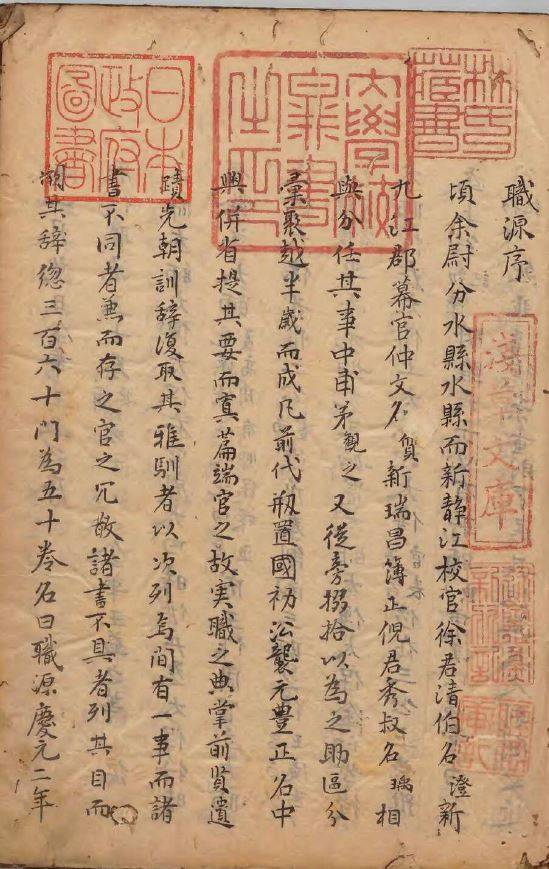 職源序
頃余尉分水縣水縣而新静江校官徐君清伯名澄新
九江郡幕官仲文名賀新瑞昌簿正倪君秀叔名瑀相
與分任其事中甫弟觀之又從旁掇拾以為之助區分
彙聚越半歲而成凡前代剏置國初沿襲元豊正名中
興併省提其要而寘萹端官之故実職之典掌前賢遺
蹟先朝訓辞復取其雅馴者以次列焉間有一事而諸
書不同者兼而存之官之冗散諸書不具者列其目而
其辞緫三百六十門為五十卷名曰職源慶元二年
林氏藏書
大學校
日本政府圖書
淺草文庫